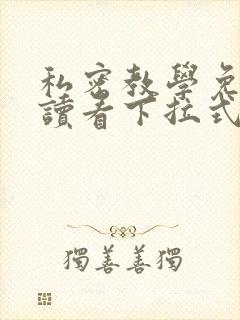 私密教學免
讀看下拉式
獨善善獨